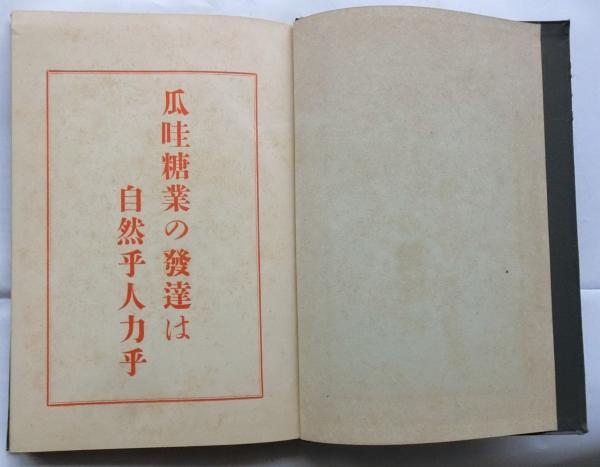 瓜哇糖業の發達は
自然乎人力乎